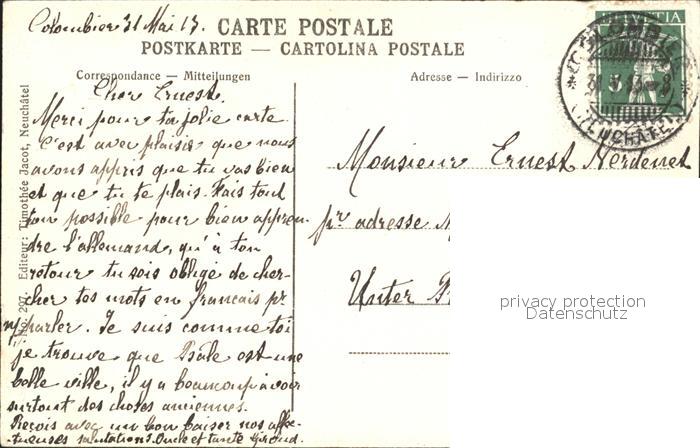 Colombier 31 Mai 13.
CARTE POSTALE
POSTKARTE — CARTOLINA POSTALE
Correspondance — Mitteilungen
Adresse — Indirizzo
HELVETIA
5
COLOMBIER
31.V.13—8
(NEUCHÂTEL)
Cher Ernest.
Merci pour ta jolie carte
C'est avec plaisir que nous
avons appris que tu vas bien
et que tu te plais. Fais tout
ton possible pour bien appren-
dre l'allemand, qu'à ton
retour tu sois obligé de cher-
cher tes mots en français pr
parler. Je suis comme toi
je trouve que Bâle est une
belle ville, il y a beaucoup à voir
surtout des choses anciennes.
Reçois avec un bon baiser nos affec-
tueuses salutations. Oncle et tante Giroud.
Monsieur Ernest
pr adresse
Unter
No 297. Editeur: Timothée Jacot, Neuchâtel
privacy protection
Datenschutz